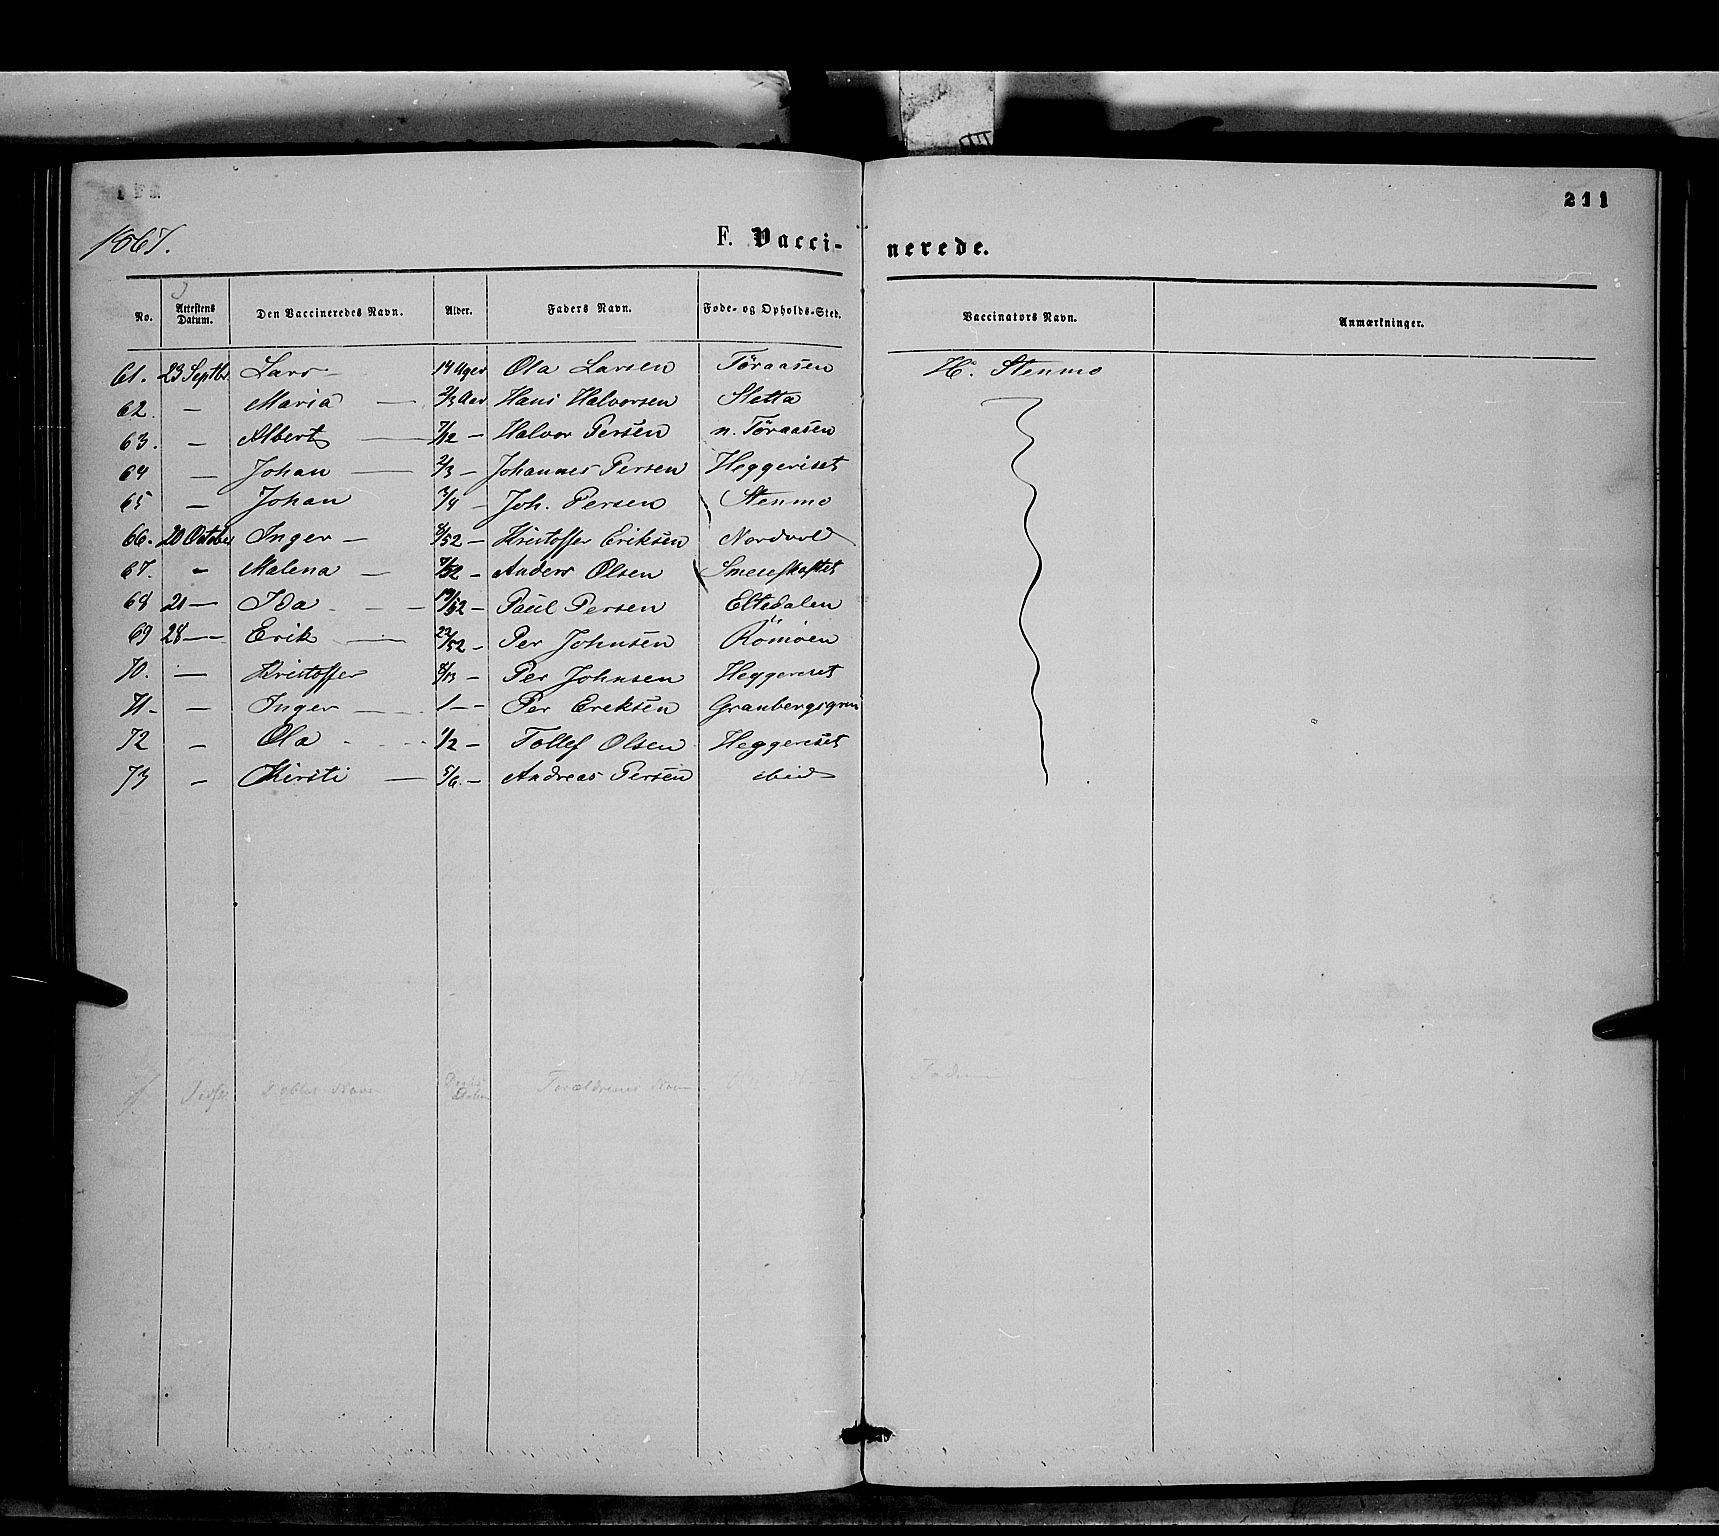 211
1867.
F. Vaccinerede.
No. Attestens Datum. Den Vaccineredes Navn. Alder. Faders Navn. Føde- og Opholds-Sted. Vaccinators Navn. Anmærkninger.
61. 23 Septbr Lars 14 Uger Ola Larsen Töraasen H. Stenmo
62. — Maria — 2/3 Aar Hans Halvorsen Sletta
63. — Albert — 7/12 — Halvor Persen n. Töraasen
64 — Johan — 2/3 — Johannes Persen Heggeriset
65 — Johan 3/4 — Joh. Persen Stenmo
66. 20 October Inger — 8/52 — Kristoffer Eriksen Nordvol
67. — Malena — 7/52 — Anders Olsen
68 21 — Ida — 19/52 — Paul Persen Eltedalen
69 28 — Erik — 22/52 — Per Johnsen Römoen
70. — Kristoffer 8/13 — Per Johnsen Heggeriset
71 — Inger — 1 — Per Eriksen
72 — Ola 1/2 — Tollef Olsen Heggeriset
73 — Kirsti — 5/6 — Andreas Persen ibid
Forældrenes Navn